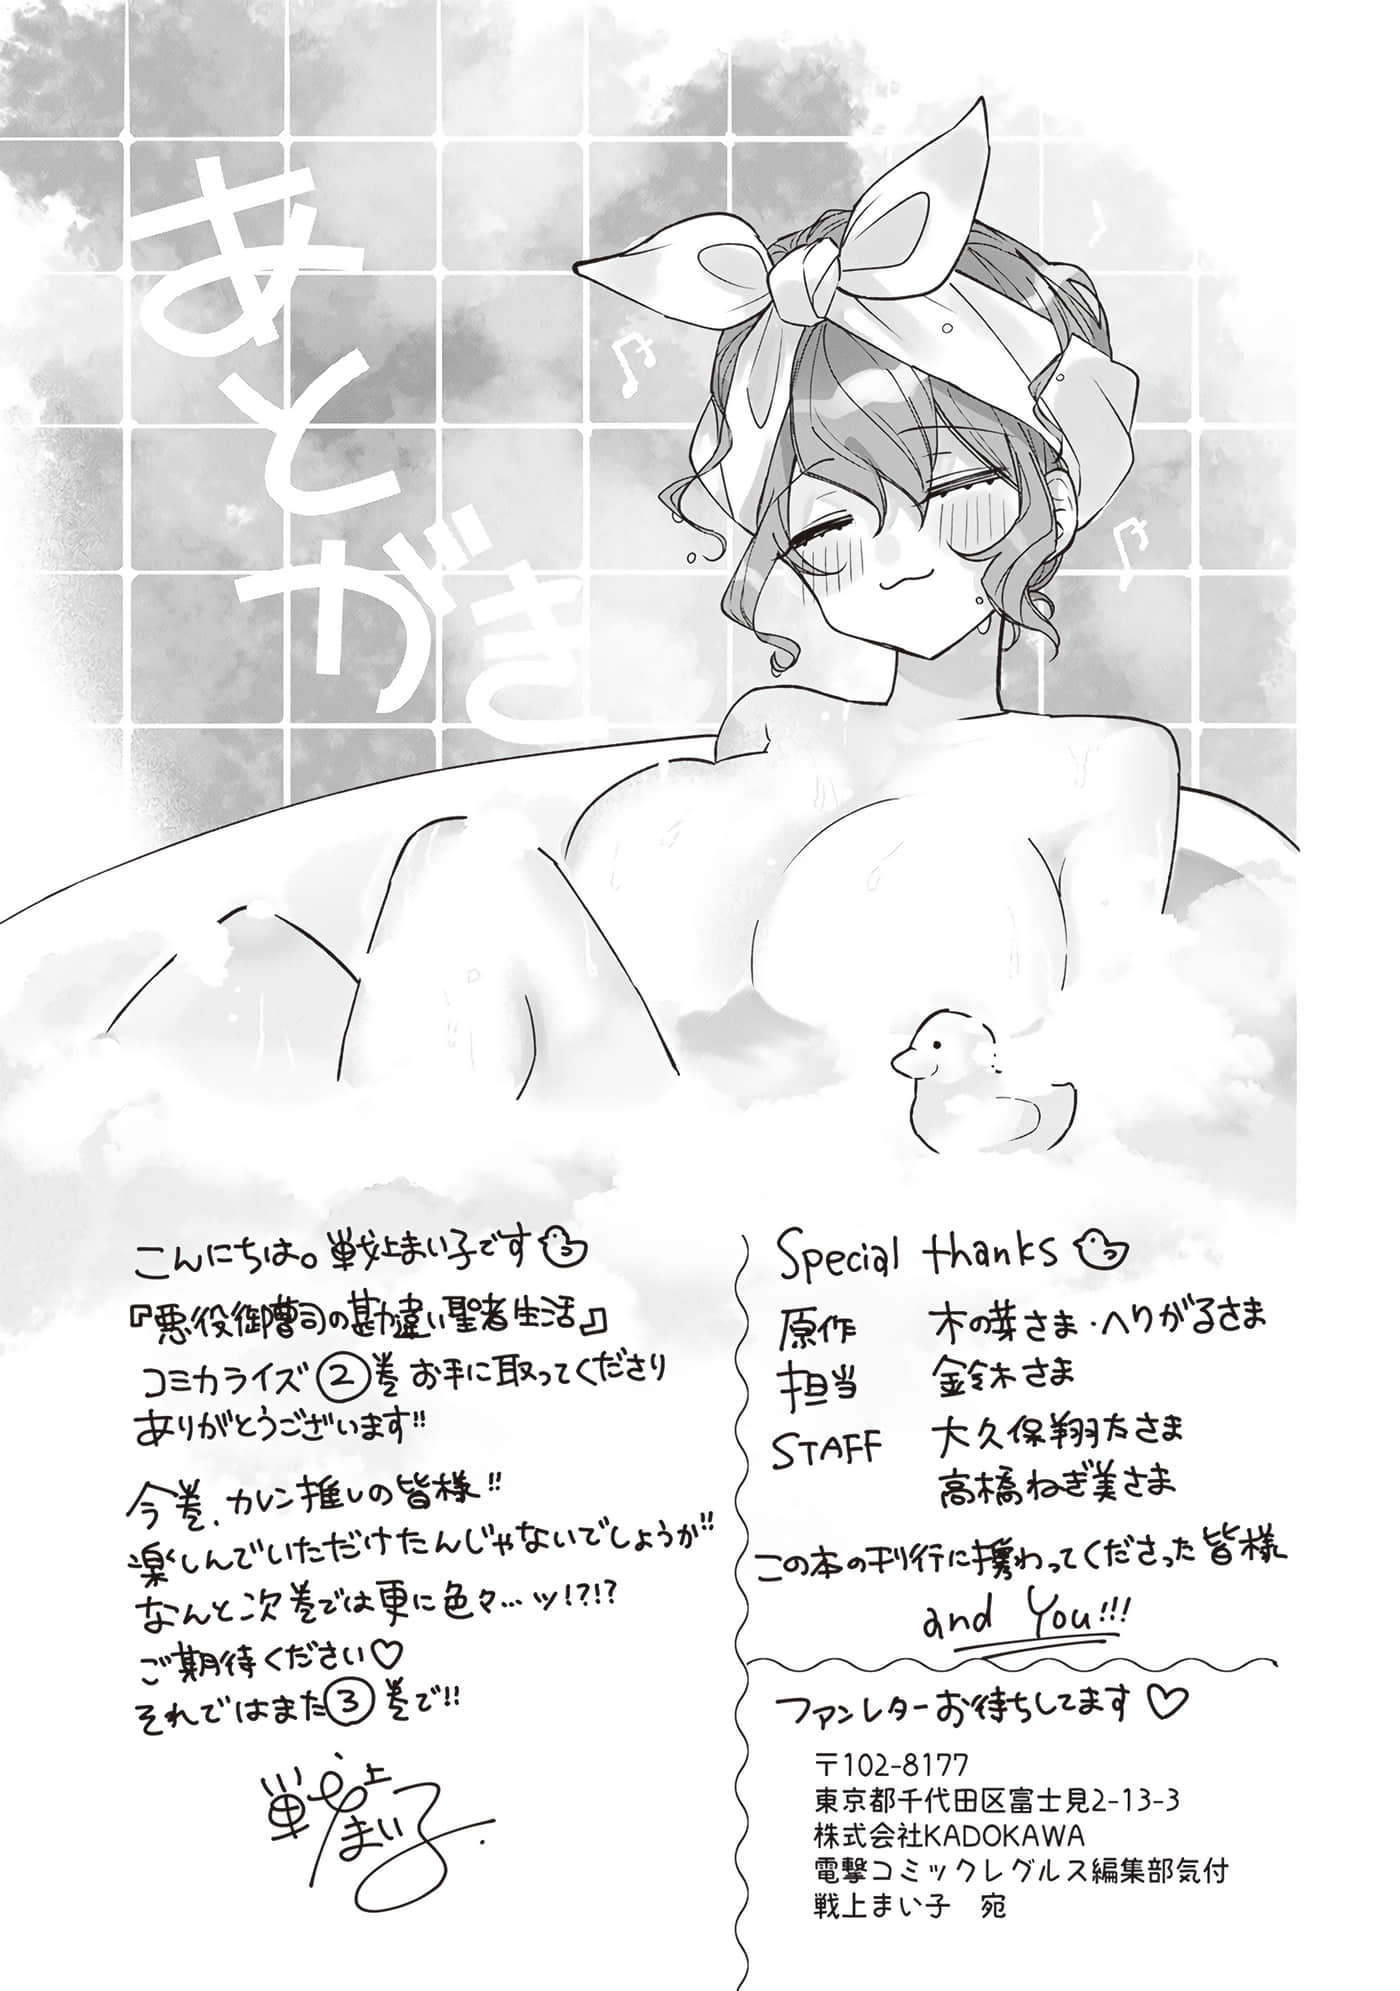 あとがき
こんにちは。戦上まい子です
『悪役御曹司の勘違い聖者生活』
コミカライズ②巻お手に取ってくださり
ありがとうございます!!
今巻、カレン推しの皆様!!
楽しんでいただけたんじゃないでしょうか!!
なんと次巻では更に色々…ッ!?!?
ご期待ください♡
それではまた③巻で!!
戦上まい子
Special thanks
原作 木の芽さま・へりがるさま
担当 金鈴木さま
STAFF 大久保翔太さま
高橋ねぎ美さま
この本の刊行に携わってくださった皆様
and You!!!
ファンレターお待ちしてます♡
〒102-8177
東京都千代田区富士見2-13-3
株式会社KADOKAWA
電撃コミックレグルス編集部気付
戦上まい子 宛